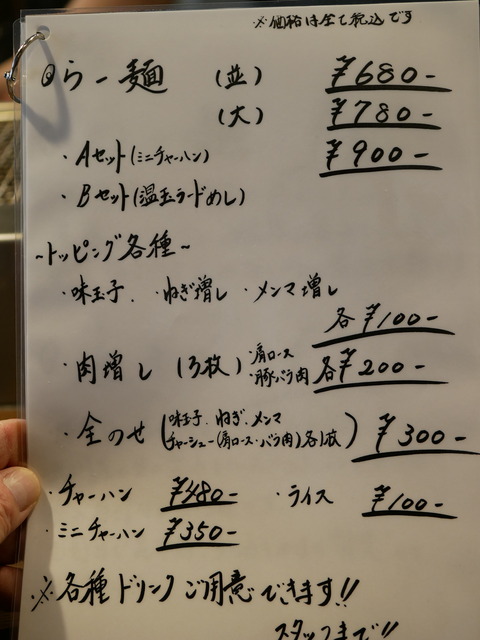 ※価格は全て税込です
◎らー麺 (並) ¥680-
(大) ¥780-
・Aセット(ミニチャーハン) ¥900-
・Bセット(温玉ラードめし)
~トッピング各種~
・味玉子 ・ねぎ増し ・メンマ増し
各¥100-
・肉増し (3枚) ・肩ロース ・豚バラ肉 各¥200-
・全のせ (味玉子、ねぎ、メンマ
チャーシュー(肩ロース・バラ肉)各1枚) ¥300-
・チャーハン ¥480- ・ライス ¥100-
・ミニチャーハン ¥350-
※各種ドリンクご用意できます!!
スタッフまで!!